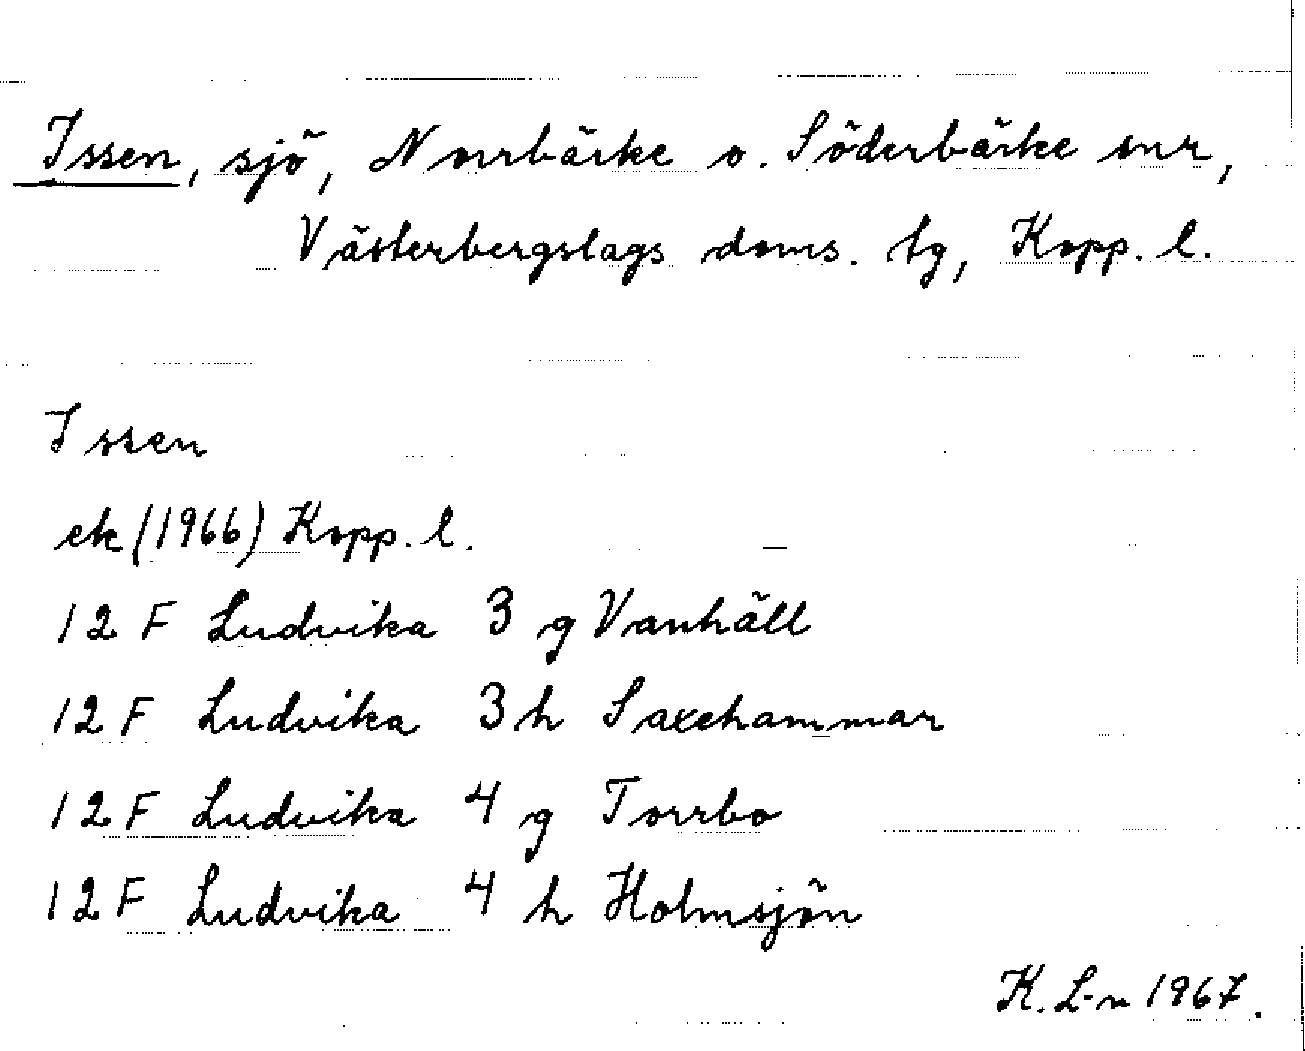 Issen, sjö, Norrbärke o. Söderbärke snr,
Västerbergslags doms. tg, Kopp. l.
Issen
ek (1966) Kopp. l.
12 F Ludvika 3 g Vanhäll
12 F Ludvika 3 h Saxehammar
12 F Ludvika 4 g Torrbo
12 F Ludvika 4 h Holmsjön
K. L-n 1967.